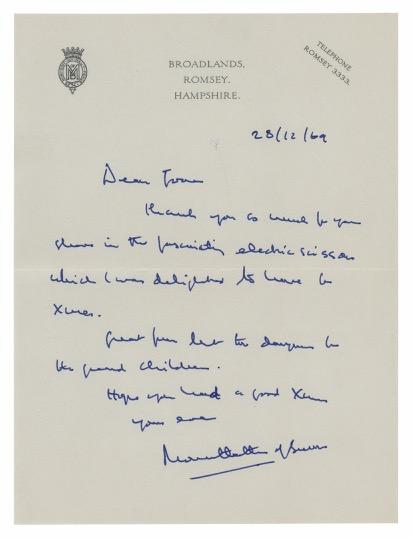 BROADLANDS,
ROMSEY.
HAMPSHIRE.
TELEPHONE
ROMSEY 3333.
28/12/69
Dear
Thank you so much for your
share in the fascinating electric scissors
which I was delighted to have for
Xmas.
Great fun but too dangerous for
the grand children.
Hope you had a good Xmas
yours ever
Mountbatten of Burma